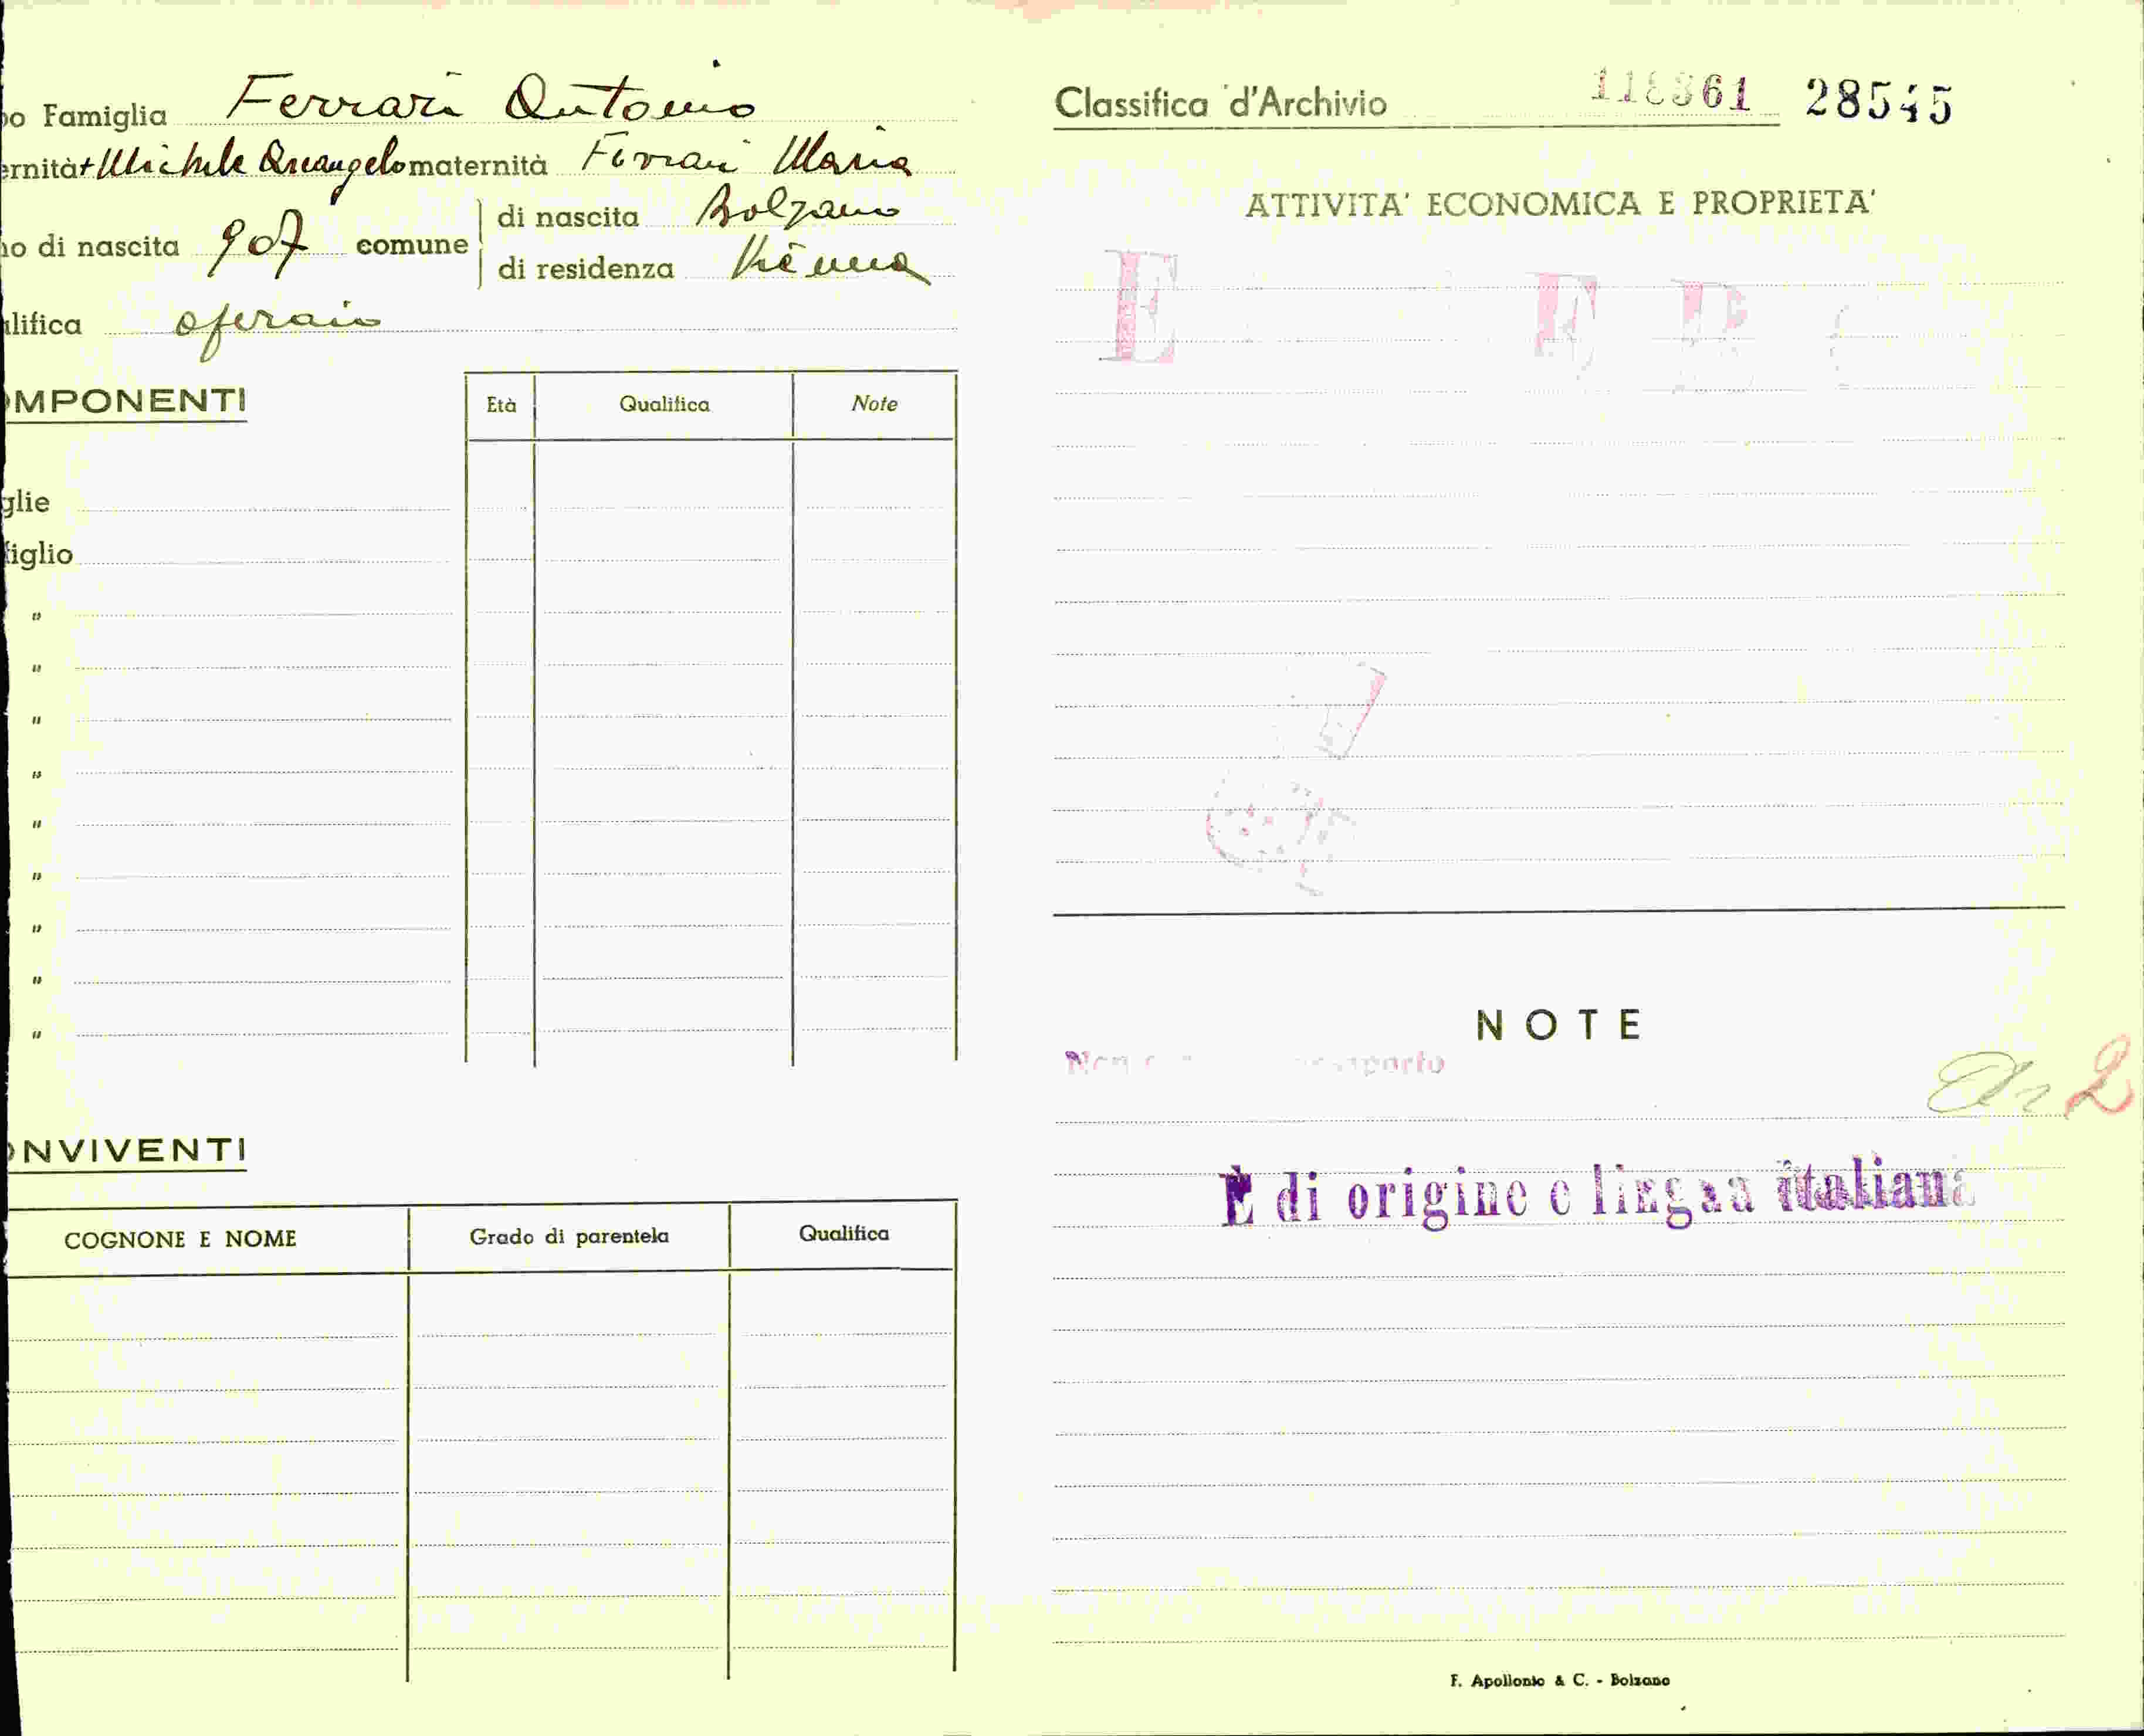 o Famiglia Ferrari Antonio
ernità + Michele Arcangelo maternità Ferrari Maria
o di nascita 907 comune di nascita Bolzano
di residenza Vienna
lifica operaio
OMPONENTI
Età Qualifica Note
glie
figlio
"
"
"
"
"
"
"
"
"
ONVIVENTI
COGNONE E NOME Grado di parentela Qualifica
Classifica d'Archivio 118361 28545
ATTIVITA' ECONOMICA E PROPRIETA'
E
NOTE
Non
2
È di origine e lingua italiana
F. Apollonio & C. - Bolzano